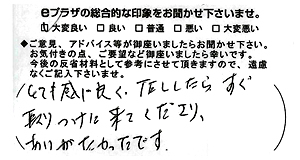 eプラザの総合的な印象をお聞かせ下さいませ。
□大変良い □良い □普通 □悪い □大変悪い
◆ご意見、アドバイス等が御座いましたらお聞かせ下さい。
お気付きの点、ご要望など御座いましたら幸いです。
今後の反省材料として参考にさせて頂きますので、遠慮
なくご記入下さいませ。
とても感じ良く、TELしたらすぐ
取りつけに来てくださり、
ありがたかったです。